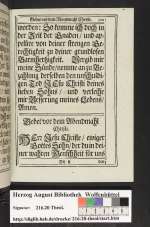 Gebet vor dem Abendmahl Christi.
worden: So komme ich doch in
der Zeit der Gnaden / und ap-
pellire von deiner strengen Ge-
rechtigkeit zu deiner grundlosen
Barmhertzigkeit. Vergib mir
meine Sünde / nimme an zu Be-
zahlung derselben den unschuldi-
gen Tod JEsu Christi deines
lieben Sohns / und verleihe
mir Besserung meines Lebens /
Amen.
Gebet vor dem Abendmahl
Christi.
HErr JEsu Christe / ewiger
Gottes Sohn / der du in dei-
ner wahren Menschheit für uns
Herzog August Bibliothek Wolfenbüttel
Signatur: 216.20 Theol.
http://diglib.hab.de/drucke/216-20-theol/start.htm